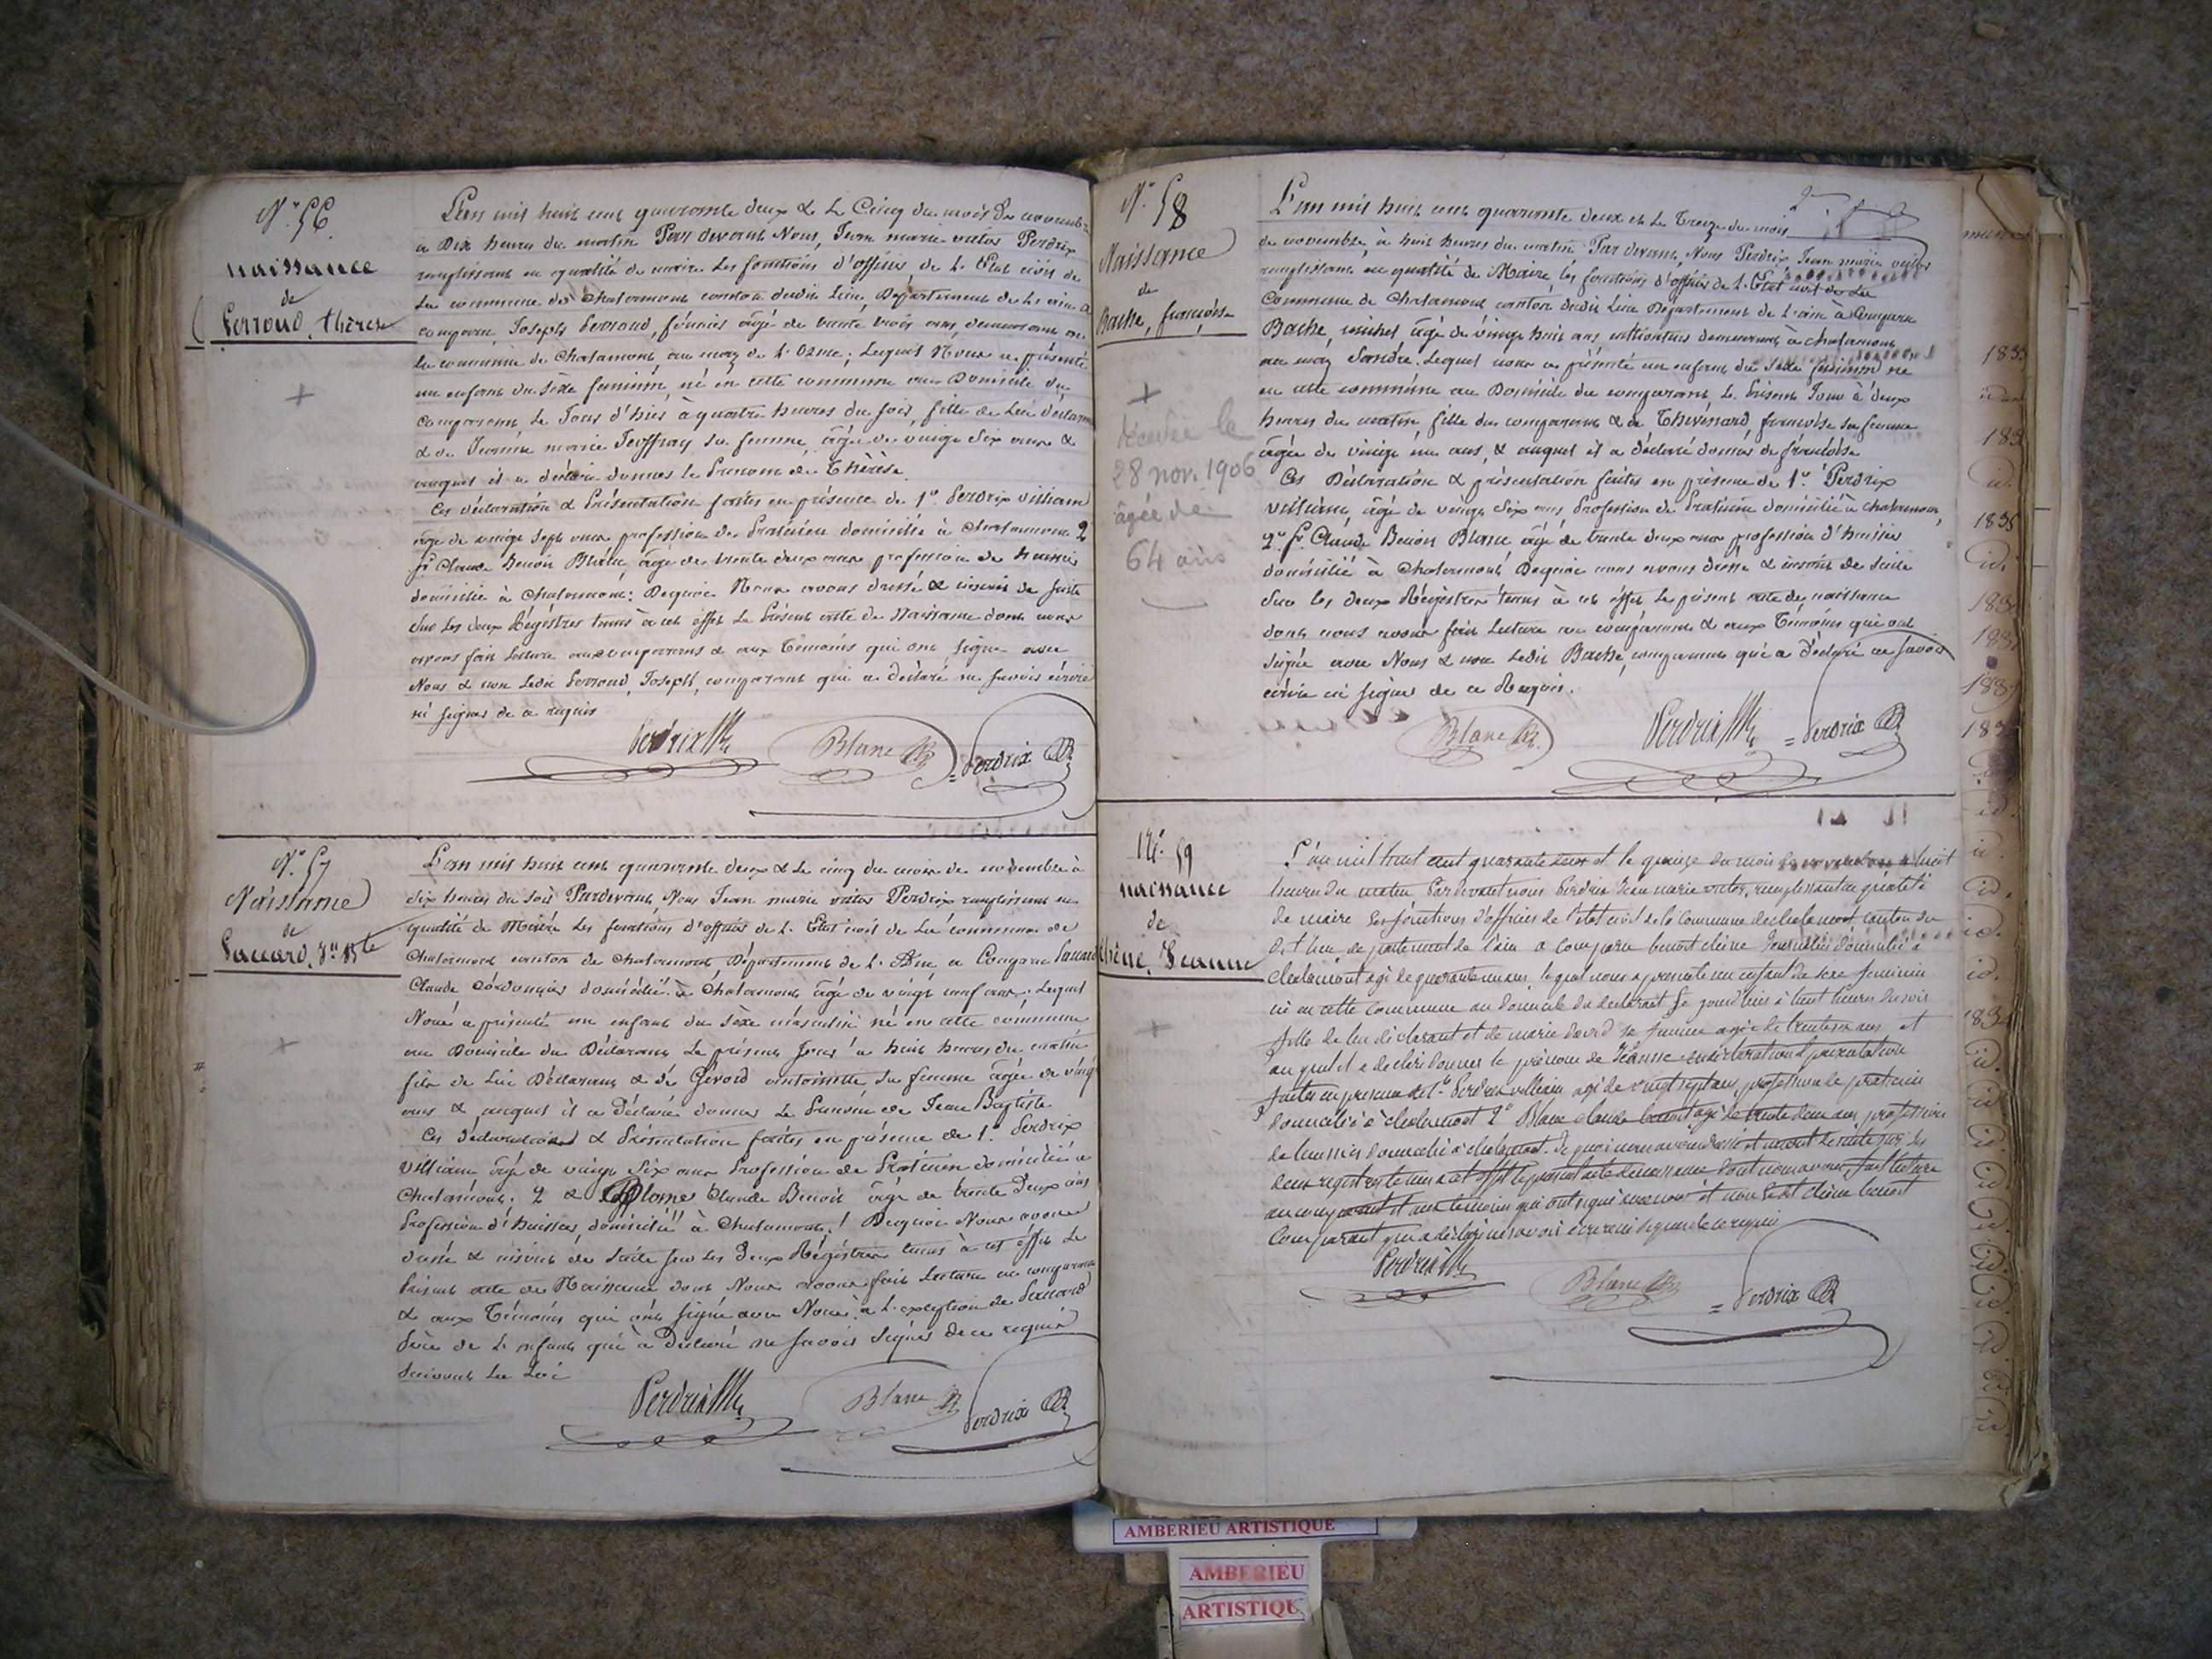 N.° 56.
naissance
de
Perroud, thérèse
L'an mil huit cent quarante deux & le Cinq du mois de novembre
a Dix heures du matin Par devant Nous, Jean marie victor Perdrix
remplissant en qualité de maire les fonctions d'officier de l'Etat civil de
la commune de Chalamont canton dudit Lieu, Département de l'ain a
comparu, Joseph Perroud, fermier âgé de trente trois ans, demeurant en
la commune de Chalamont, au maz de l'; Lequel Nous a présenté
un enfant du sèxe feminin, né en cette commune au Domicile du
comparant, Le Jour d'hier, à quatre heures du soir, fille de Lui déclarant
& de Jeanne marie Jeoffray sa femme, âgée de vingt six ans &
auquel il a déclaré donner le Prénom de Thérèse.
Ces déclaration & Présentation faites en présence de 1.° Perdrix villiam
âgé de vingt sept ans profession de Praticien domicilié à Chalamont 2°
Claude Benoit Blanc, âgé de trente deux ans profession de huissier
domicilié à Chalamont: Dequoi Nous avons dressé & inscrit de suite
sur Les deux Régistres tenus à cet effet Le Présent acte de Naissance dont nous
avons fait Lecture aux comparant & aux Témoins qui ont signé avec
Nous & non Ledit Perroud, Joseph, comparant qui a déclaré ne savoir écrire
ni signer de ce requis
Perdrix Blanc Perdrix
N.° 57
Naissance
de
Paccard, Jn Bte
L'an mil huit cent quarante deux & Le cinq du mois de novembre à
six heures du soir Pardevant, Nous Jean marie victor Perdrix remplissant en
qualité de Maire Les fonctions d'officier de L'Etat civil de La commune de
Chalamont canton de Chalamont, Département de L'Ain a Comparu Paccard
Claude Cordonnier domicilié à Chalamont âgé de vingt neuf ans. Lequel
Nous a présenté un enfant du Sèxe masculin né en cette commune
au Domicile du Déclarant Le présent Jour à huit heures du matin
fils de Lui Déclarant & de antoinette sa femme âgée de vingt
ans & auquel il a Déclaré donner Le Prénom de Jean Baptiste
Ces déclaration & Présentation faites en présence de 1.° Perdrix
villiam âgé de vingt six ans Profession de Praticien domicilié a
Chalamont. 2 & Blanc Claude Benoit âgé de trente Deux ans
Profession d'huissier, domicilié à Chalamont. Dequoi Nous avons
dressé & inscrit de suite sur Les Deux Régistres tenus à cet effet Le
Présent acte de Naissance dont Nous avons fait Lecture au comparant
& aux Témoins qui ont signé avec Nous à L'exception de Paccard
Père de L'enfant qui à Déclaré ne savoir signer de ce requis
suivant La Loi
Perdrix Blanc Perdrix
N.° 58
Naissance
de
Bache, françoise
décédée le
28 nov. 1906
âgée de
64 ans
L'an mil huit cent quarante deux et Le Treize du mois
de novembre, à huit heures du matin Par devant, Nous Perdrix, Jean marie victor
remplissant en qualité de Maire, les fonctions d'officier de L'Etat civil de La
Commune de Chalamont canton dudit Lieu Département de L'ain à Comparu
Bache, michel âgé de vingt huit ans cultivateur demeurant à chalamont
au maz Lequel nous a présenté un enfant du Sèxe feminin né
en cette commune au Domicile du comparant, Le Présent Jour à deux
heures du matin, fille du comparant & de Thevenard, françoise sa femme
âgée de vingt un ans, & auquel il a déclaré donner de françoise
Ces Déclaration & présentation faites en présence de 1.° Perdrix
villiam, âgé de vingt six ans Profession de Praticien domicilié à chalamont,
2° Claude Benoit Blanc âgé de trente deux ans profession d'huissier
domicilié à Chalamont Dequoi nous avons dressé & inscrit de suite
sur les deux Régistres tenus à cet effet Le présent acte de naissance
dont nous avons fait Lecture au comparant & aux Témoins qui ont
signé avec Nous & non Ledit Bache, comparant qui a déclaré ne savoir
écrire ni signer de ce Requis.
Blanc Perdrix Perdrix
N.° 59
naissance
de
chêne, Jeanne
L'an mil huit cent quarante deux et le quinze du mois de novembre a huit
heures du matin Pardevant nous Perdrix Jean marie victor, remplissant en qualité
de maire les fonctions d'officier de l'etat civil de la commune de chalamont canton du
dit lieu, departement de l'ain a comparu benoit chêne domicilié à
chalamont agé de quarante ans, lequel nous a presenté un enfant de sexe feminin
né en cette commune au domicile du declarant Le jour d'hier à huit heures du soir
fille de lui déclarant et de marie david sa femme agée de trente ans et
auquel il a declaré donner le prénom de Jeanne ces déclaration & présentation
faites en presence de 1.° Perdrix villiam agé de vingt sept ans, profession de praticien
domicilié à chalamont 2° Blanc claude benoit agé de trente deux ans, profession
de huissier domicilié à chalamont. De quoi nous avons dressé et inscrit de suite sur les
deux registres tenus a cet effet le present acte de naissance dont nous avons fait lecture
au comparant et aux temoins qui ont signé avec nous et non Ledit chêne benoit
Comparant qui a déclaré ne savoir écrire ni signer de ce requis
Perdrix Blanc Perdrix
AMBERIEU ARTISTIQUE
AMBERIEU
ARTISTIQUE